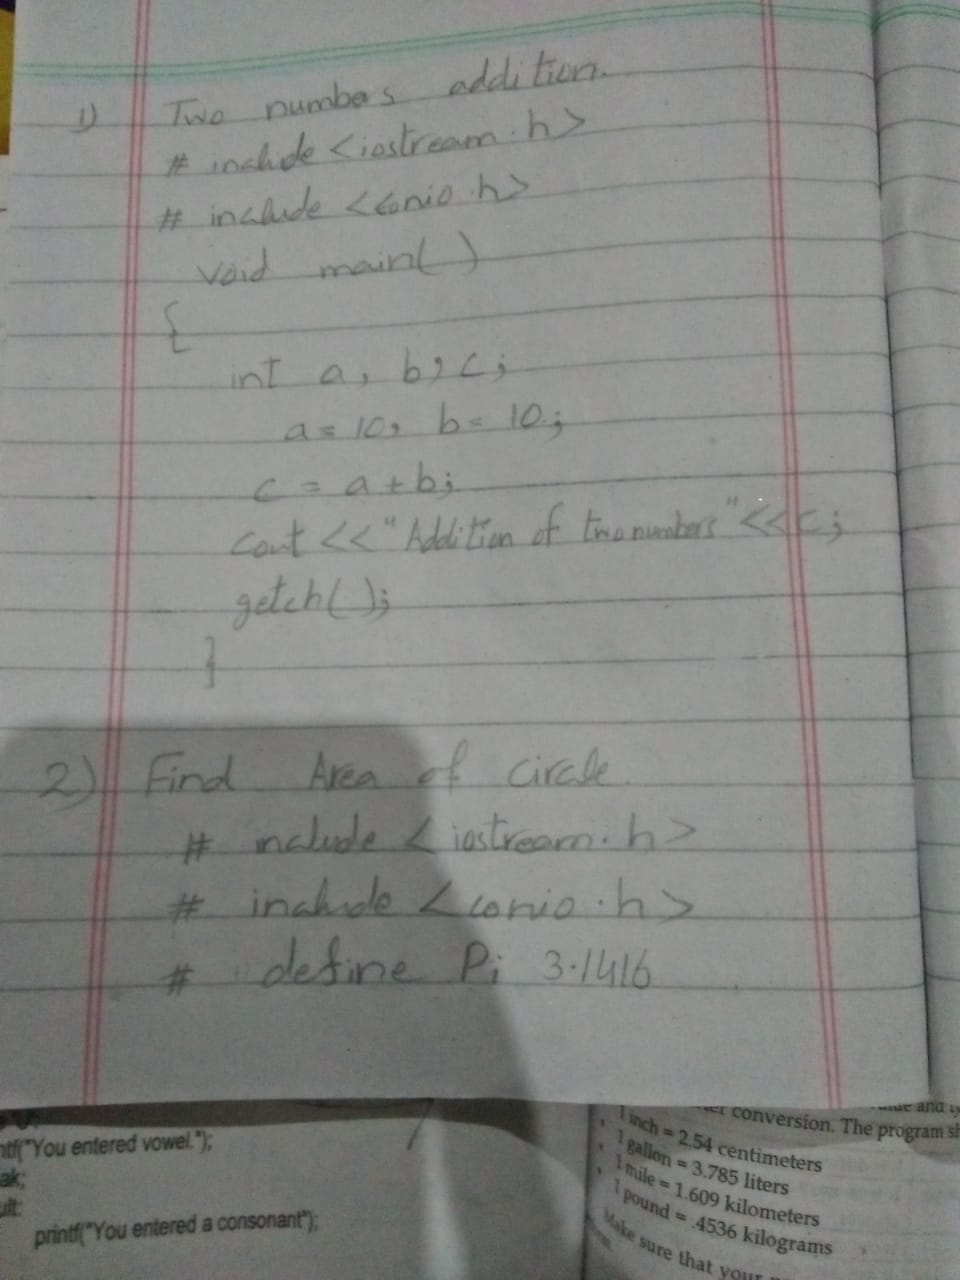 1) Two numbers addition.
# include <iostream.h>
# include <conio.h>
void main()
{
int a, b, c;
a = 10, b = 10;
c = a + b;
cout << "Addition of two numbers" << c;
getch();
}
2) Find Area of circle.
# include <iostream.h>
# include <conio.h>
# define Pi 3.1416
ntf("You entered vowel.");
ak;
ult:
printf("You entered a consonant");
conversion. The program sh
1 inch = 2.54 centimeters
1 gallon = 3.785 liters
1 mile = 1.609 kilometers
1 pound = .4536 kilograms
Make sure that your